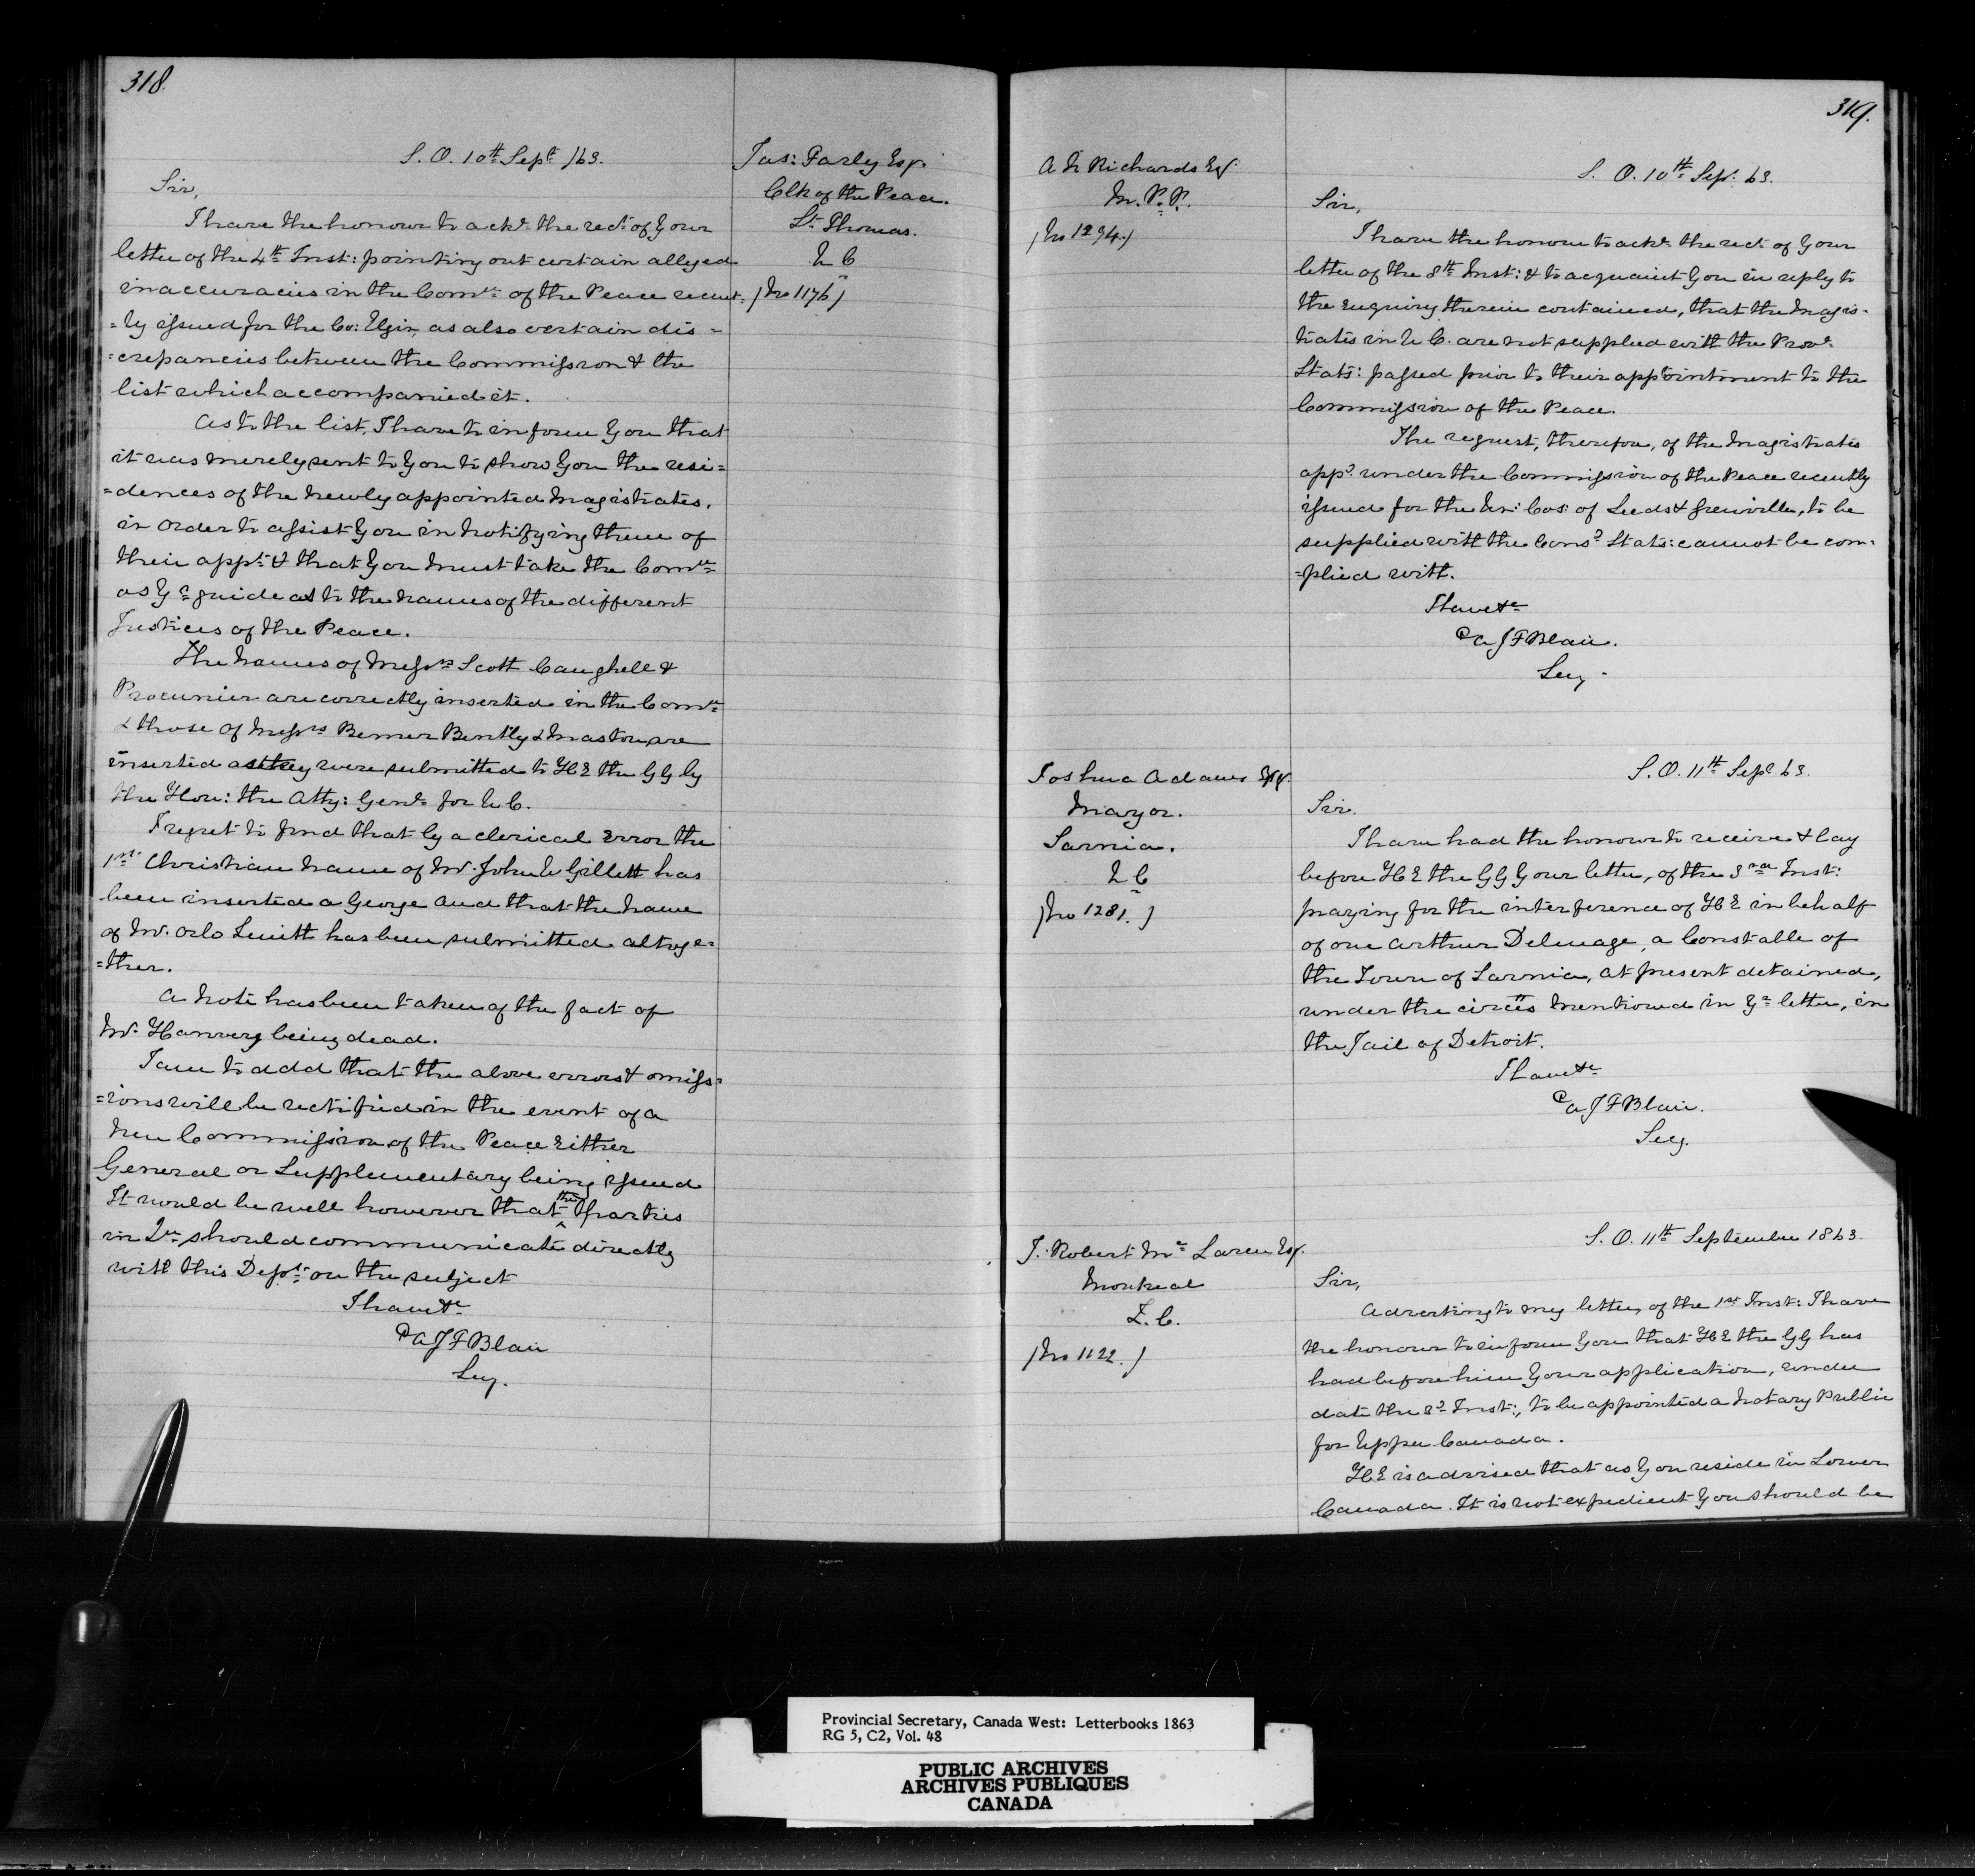 318.
S. O. 10th Sept /63.
Jas: Farly Esq.
Clk of the Peace.
St. Thomas.
U C
/No 1176/
Sir,
I have the honour to acke. the rect. of Your
letter of the 4th Inst: pointing out certain alleged
inaccuracies in the Comn. of the Peace recent=
=ly issued for the Co: Elgin, as also certain dis=
=crepancies between the Commission & the
list which accompanied it.
As to the list, I have to inform You that
it was merely sent to You to show You the resi=
=dences of the newly appointed Magistrates,
in order to assist You in notifying them of
their appt. & that You must take the Comn.
as Yr guide as to the names of the different
Justices of the Peace.
The names of Messrs Scott Caughell &
Procunier are correctly inserted in the Comn.
& those of Messrs Bemer Bently & Maston are
inserted as they were submitted to HE the GG by
the Hon: the Atty: Genl. for U C.
I regret to find that by a clerical error the
1st Christian name of Mr. John W Gillett has
been inserted a George and that the name
of Mr. Orlo Leuitt has been submitted altoge=
=ther.
A note has been taken of the fact of
Mr. Hanvery being dead.
I am to add that the above errors & omiss=
=ions will be rectified in the event of a
new Commission of the Peace Either
General or Supplementary being issued
It would be well however that the parties
in Qn. should communicate directly
with this Dept. on the subject
I have &c
A J F Blair
Secy.
319.
A N Richards Esq.
M. P. P.
/No 1294./
S. O. 10th Sep. 63.
Sir,
I have the honour to ackn. the rect. of Your
letter of the 8th Inst: & to acquaint You in reply to
the enquiry therein contained, that the Magis=
trates in U C. are not supplied with the Provl.
Stats: passed prior to their appointment to the
Commission of the Peace.
The request, therefore, of the Magistrates
appd. under the Commission of the Peace recently
issued for the Un: Cos: of Leeds & Grenville, to be
supplied with the Consd. Stats: cannot be com=
=plied with.
I have &c
A J F Blair.
Secy.
Joshua Adams Esq.
Mayor.
Sarnia.
U C
/No 1281./
S. O. 11th Sept. 63.
Sir.
I have had the honour to receive & lay
before HE the GG Your letter, of the 3rd Inst:
praying for the interference of HE in behalf
of one Arthur Delmage, a Constable of
the Town of Sarnia, at present detained,
under the circes mentioned in Yr. letter, in
the Jail of Detroit.
I have &c
A J F Blair.
Secy.
J. Robert Mc Laren Esq.
Montreal
L. C.
/No 1122./
S. O. 11th September 1863.
Sir,
Adverting to my letter, of the 1st Inst: I have
the honour to inform You that HE the GG has
had before him Your application, under
date the 3d Inst:, to be appointed a Notary Public
for Upper Canada.
HE is advised that as You reside in Lower
Canada. It is not expedient You should be
Provincial Secretary, Canada West: Letterbooks 1863
RG 5, C2, Vol. 48
PUBLIC ARCHIVES
ARCHIVES PUBLIQUES
CANADA